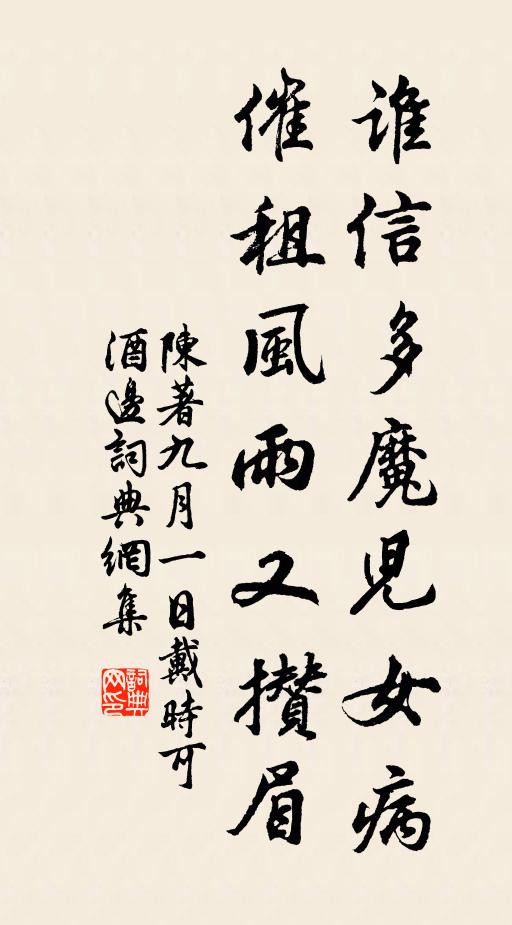 誰信多魔兒女病
催租風雨又攢眉
陳著九月一日戴時可
酒邊詞典網集
詞典網印